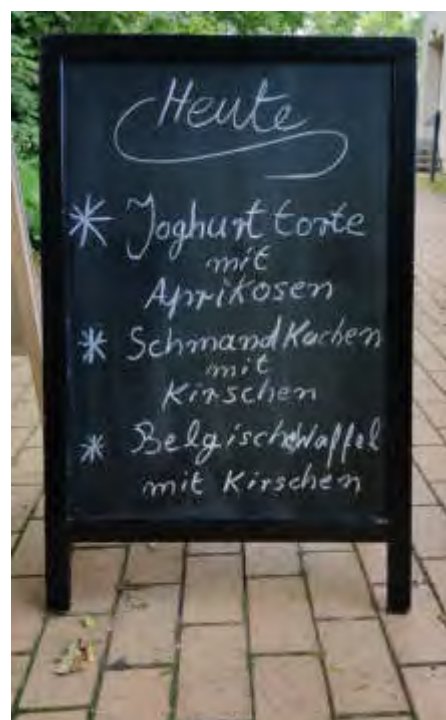 Heute
Joghurttorte
mit
Aprikosen
Schmandkuchen
mit
Kirschen
Belgische Waffel
mit Kirschen